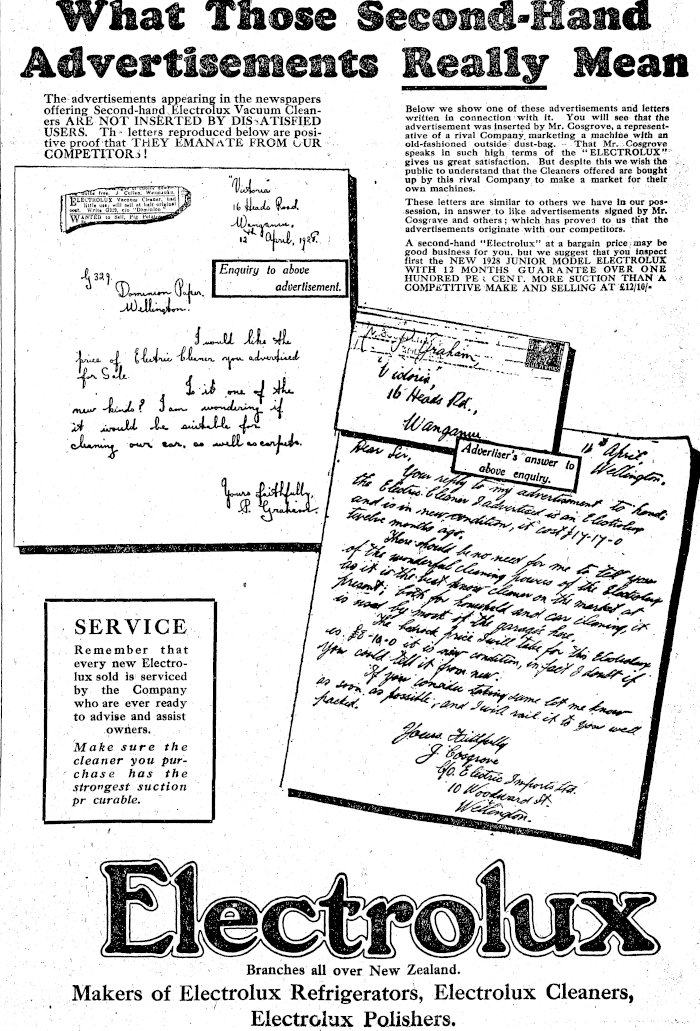 What Those Second-Hand
Advertisements Really Mean
The advertisements appearing in the newspapers
offering Second-hand Electrolux Vacuum Clean-
ers ARE NOT INSERTED BY DISSATISFIED
USERS. The letters reproduced below are posi-
tive proof that THEY EMANATE FROM OUR
COMPETITORS!
Below we show one of these advertisements and letters
written in connection with it. You will see that the
advertisement was inserted by Mr. Cosgrove, a represent-
ative of a rival Company marketing a machine with an
old-fashioned outside dust-bag. That Mr. Cosgrove
speaks in such high terms of the "ELECTROLUX"
gives us great satisfaction. But despite this we wish the
public to understand that the Cleaners offered are bought
up by this rival Company to make a market for their
own machines.
These letters are similar to others we have in our pos-
session, in answer to like advertisements signed by Mr.
Cosgrove and others; which has proved to us that the
advertisements originate with our competitors.
A second-hand "Electrolux" at a bargain price may be
good business for you, but we suggest that you inspect
first the NEW 1928 JUNIOR MODEL ELECTROLUX
WITH 12 MONTHS GUARANTEE OVER ONE
HUNDRED PER CENT. MORE SUCTION THAN A
COMPETITIVE MAKE AND SELLING AT £12/10/-
J. Cullen,
ELECTROLUX Vacuum Cleaner, had
little use, will sell at half original
cost. Write G329, c/o "Dominion."
WANTED to Sell, Pig
"Victoria"
16 Heads Road
Wanganui,
12th April, 1928.
Enquiry to above
advertisement.
G 329.
Dominion Paper.
Wellington.
I would like the
price of Electric Cleaner you advertised
for Sale.
Is it one of the
new kinds? I am wondering if
it would be suitable for
cleaning our car, as well as carpets.
Yours faithfully,
P. Graham.
P. Graham
"Victoria",
16 Heads Rd.,
Wanganui
Advertiser's answer to
above enquiry.
12th April
Wellington.
Dear Sir,
Your reply to my advertisement to hand,
the Electric Cleaner I advertised is an Electrolux
and is in new condition, it cost £17-17-0
twelve months ago.
There should be no need for me to tell you
of the wonderful cleaning powers of the Electrolux
as it is the best know cleaner on the market at
present; both for household and car cleaning, it
is used by most of the garages here.
The bedrock price I will take for this Electrolux
is £8-10-0 it is new condition, in fact I doubt if
you could tell it from new.
If you consider taking same let me know
as soon as possible, and I will rail it to you well
packed.
Yours Faithfully
J Cosgrove
C/O. Electric Imports Ltd.
10 Woodward St.
Wellington.
SERVICE
Remember that
every new Electro-
lux sold is serviced
by the Company
who are ever ready
to advise and assist
owners.
Make sure the
cleaner you pur-
chase has the
strongest suction
pr curable.
Electrolux
Branches all over New Zealand.
Makers of Electrolux Refrigerators, Electrolux Cleaners,
Electrolux Polishers.